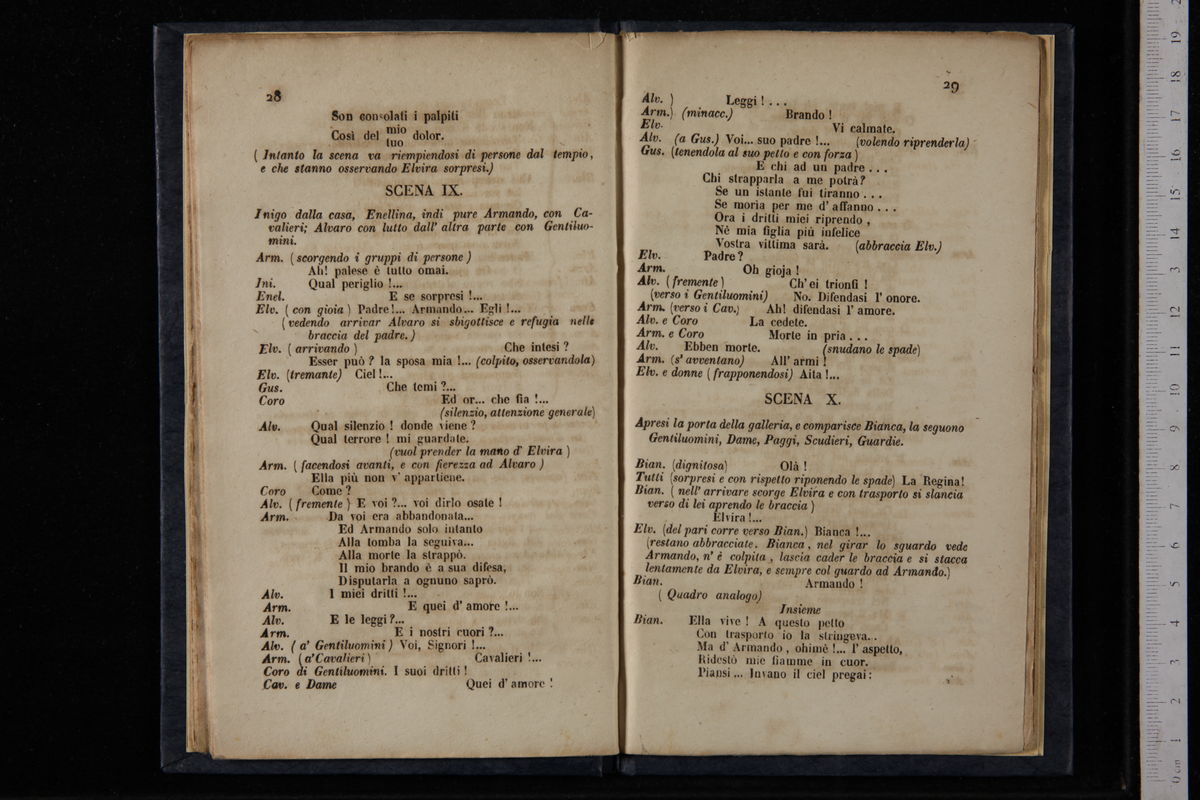 28
Son consolati i palpiti
Così del mio dolor.
tuo
( Intanto la scena va riempiendosi di persone dal tempio,
e che stanno osservando Elvira sorpresi.)
SCENA IX.
Inigo dalla casa, Enellina, indi pure Armando, con Ca-
valieri; Alvaro con lutto dall' altra parte con Gentiluo-
mini.
Arm. ( scorgendo i gruppi di persone )
Ah! palese è tutto omai.
Ini. Qual periglio !...
Enel. E se sorpresi !...
Elv. ( con gioia ) Padre!... Armando... Egli !...
( vedendo arrivar Alvaro si sbigottisce e refugia nelle
braccia del padre. )
Elv. ( arrivando ) Che intesi ?
Esser può ? la sposa mia !... (colpito, osservandola)
Elv. (tremante) Ciel !...
Gus. Che temi ?...
Coro Ed or... che fia !...
(silenzio, attenzione generale)
Alv. Qual silenzio ! donde viene ?
Qual terrore ! mi guardate.
(vuol prender la mano d' Elvira )
Arm. ( facendosi avanti, e con fierezza ad Alvaro )
Ella più non v' appartiene.
Coro Come ?
Alv. ( fremente ) E voi ?... voi dirlo osate !
Arm. Da voi era abbandonata...
Ed Armando solo intanto
Alla tomba la seguiva...
Alla morte la strappò.
Il mio brando è a sua difesa,
Disputarla a ognuno saprò.
Alv. I miei dritti !...
Arm. E quei d' amore !...
Alv. E le leggi ?...
Arm. E i nostri cuori ?...
Alv. ( a' Gentiluomini ) Voi, Signori !...
Arm. ( a' Cavalieri ) Cavalieri !...
Coro di Gentiluomini. I suoi dritti !
Cav. e Dame Quei d' amore !
29
Alv. ) Leggi ! . . .
Arm.) (minacc.) Brando !
Elv. Vi calmate.
Alv. (a Gus.) Voi... suo padre !... (volendo riprenderla)
Gus. (tenendola al suo petto e con forza )
E chi ad un padre . . .
Chi strapparla a me potrà ?
Se un istante fui tiranno . . .
Se moria per me d' affanno . . .
Ora i dritti miei riprendo ,
Nè mia figlia più infelice
Vostra vittima sarà. (abbraccia Elv.)
Elv. Padre ?
Arm. Oh gioja !
Alv. ( fremente ) Ch' ei trionfi !
(verso i Gentiluomini) No. Difendasi l' onore.
Arm. (verso i Cav.) Ah! difendasi l' amore.
Alv. e Coro La cedete.
Arm. e Coro Morte in pria . . .
Alv. Ebben morte. (snudano le spade)
Arm. (s' avventano) All' armi !
Elv. e donne ( frapponendosi) Aita !...
SCENA X.
Apresi la porta della galleria, e comparisce Bianca, la seguono
Gentiluomini, Dame, Paggi, Scudieri, Guardie.
Bian. (dignitosa) Olà !
Tutti (sorpresi e con rispetto riponendo le spade) La Regina!
Bian. ( nell' arrivare scorge Elvira e con trasporto si slancia
verso di lei aprendo le braccia )
Elvira !...
Elv. (del pari corre verso Bian.) Bianca !...
(restano abbracciate. Bianca , nel girar lo sguardo vede
Armando, n' è colpita , lascia cader le braccia e si stacca
lentamente da Elvira, e sempre col guardo ad Armando.)
Bian. Armando !
( Quadro analogo)
Insieme
Bian. Ella vive ! A questo petto
Con trasporto io la stringeva...
Ma d' Armando , ohimè !... l' aspetto,
Ridestò mie fiamme in cuor.
Piansi ... Invano il ciel pregai :
0 cm 1 2 3 4 5 6 7 8 9 10 11 12 13 14 15 16 17 18 19